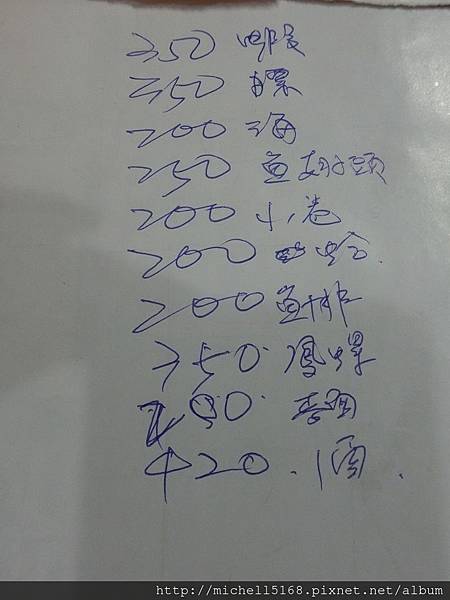 350 蝦
350
200 海
250 魚
200 小卷
200 蛤
200 魚排
350 鳳螺
420 酒
http://michell5168.pixnet.net/album